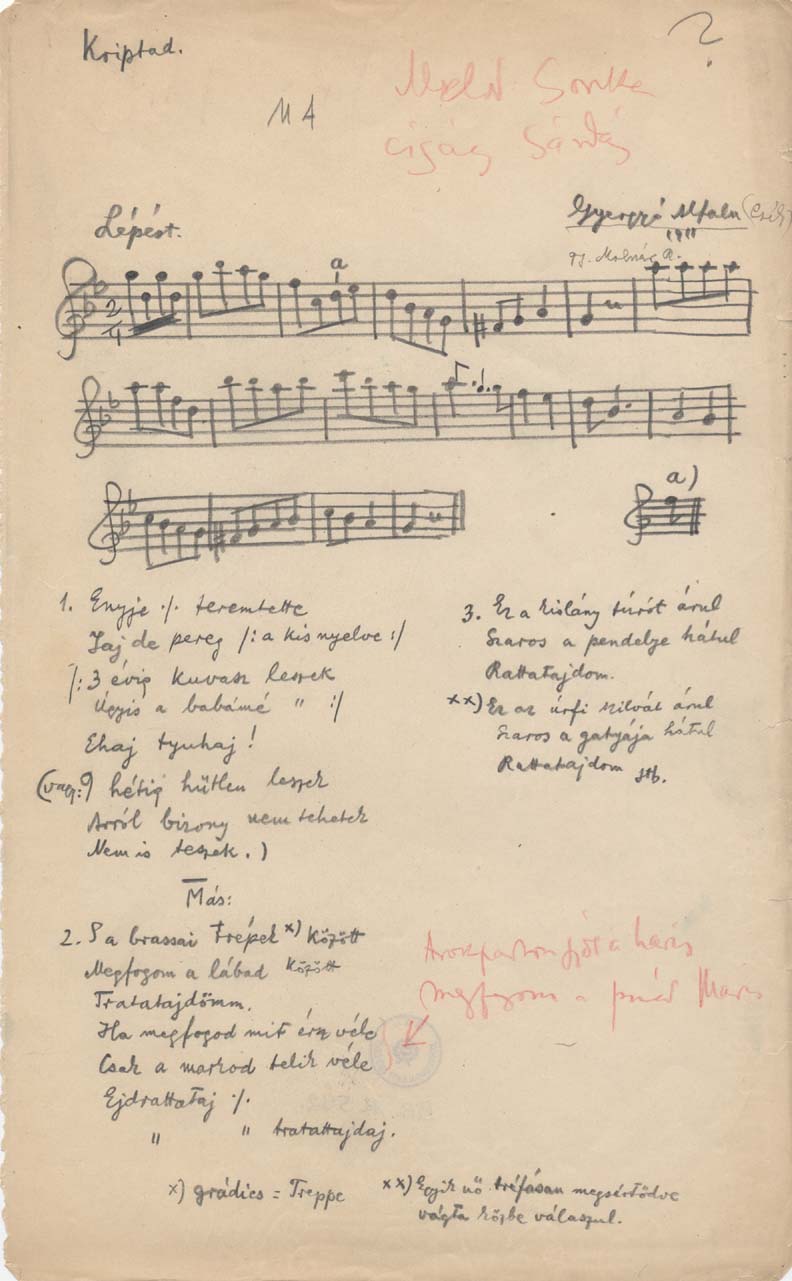 Kriptad.
?
M 4
Lépést.
Gyergyó Alfalu (Csík)
Molnár A.
a
2
4
a)
1. Enyje ·/. teremtette
Jaj de pereg /: a kis nyelve :/
/: 3 évig kuvasz leszek
Úgyis a babámé " :/
Ehaj tyuhaj!
(vagy:) hétig hűtlen leszek
Arról bizony nem tehetek
Nem is teszek.)
Más:
2. S a brassai Trépek x) között
Megfogom a lábad között
Tratatajdömm.
Ha megfogod mit érsz véle
Csak a markod telik véle
Ejdrattataj ·/.
" " tratattajdaj.
3. Ez a kislány túrót árul
Szaros a pendelye hátul
Rattatajdom.
xx) Ez az úrfi szilvát árul
Szaros a gatyája hátul
Rattatajdom stb.
Árokparton a haris
megfogom a Maris
x) grádics = Treppe
xx) Egyik nő tréfásan megsértődve
vágta közbe válaszul.